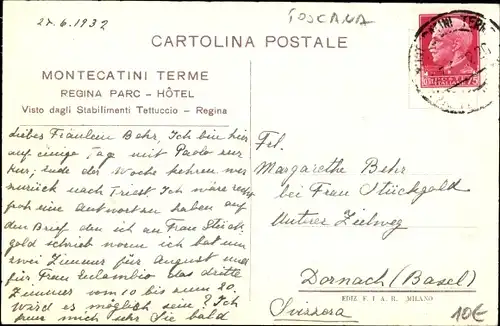 27.6.1932
TOSCANA
CARTOLINA POSTALE
MONTECATINI TERME
REGINA PARC - HÔTEL
Visto dagli Stabilimenti Tettuccio - Regina
Liebes Fräulein Behr, Ich bin hier
auf einige Tag mit Paolo zur
Kur, Ende der Woche kehren wir
zurück nach Triest. Ich wäre recht
froh eine Antwort zu haben auf
den Brief den ich an Frau Stück
gold schrieb worin ich bat um
zwei Zimmer für August und
für Frau das dritte
Zimmer vom 10 bis zum 20.
Wird es möglich sein? Ich
freue mich sehr Sie bald
Frl.
Margarethe Behr
bei Frau Stückgold
Unterer Zielweg
Dornach (Basel)
Svizzera
EDIZ. F. I. A. R. MILANO
10€